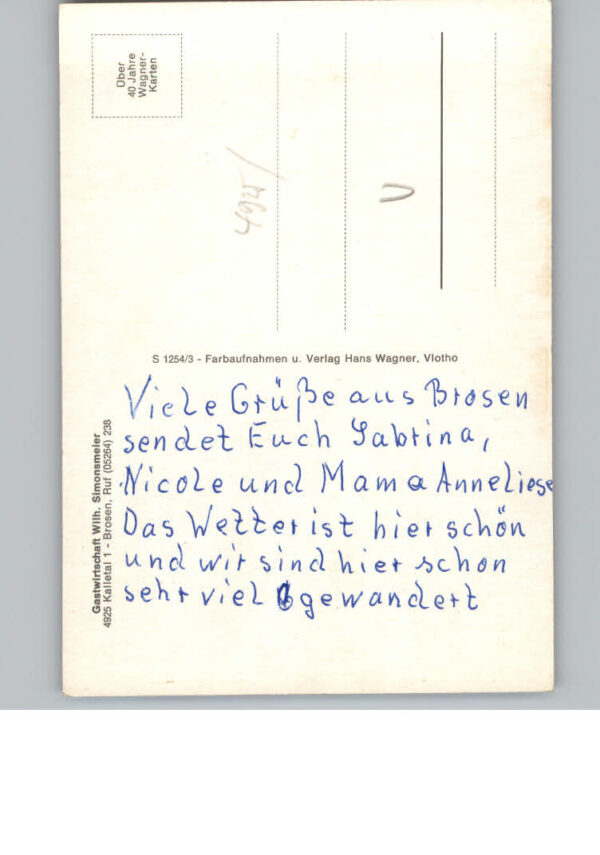 Über
40 Jahre
Wagner-
Karten
4925/
S 1254/3 - Farbaufnahmen u. Verlag Hans Wagner, Vlotho
Gastwirtschaft Wilh. Simonsmeier
4925 Kalletal 1 - Brosen, Ruf (05264) 238
Viele Grüße aus Brosen
sendet Euch Sabrina,
Nicole und Mama Anneliese
Das Wetter ist hier schön
und wir sind hier schon
sehr viel gewandert